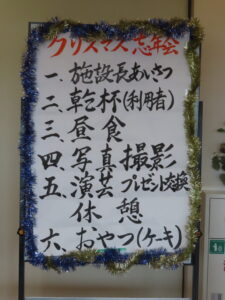 クリスマス忘年会
一、施設長あいさつ
二、乾杯(利用者)
三、昼食
四、写真撮影
五、演芸 プレゼント交換
休憩
六、おやつ(ケーキ)